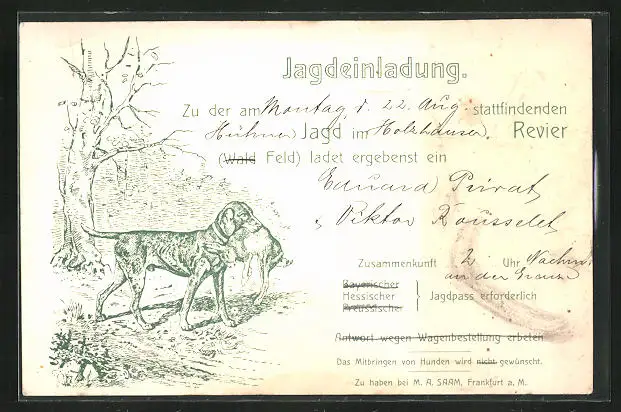 Jagdeinladung.
Zu der am Montag, d. 22. Aug. stattfindenden
Hühner Jagd im Holzhäuser. Revier
(Wald Feld) ladet ergebenst ein
Eduard Privat
Viktor Rousselet
Zusammenkunft 2 Uhr Nachm.
an der Grenze
Bayerischer
Hessischer } Jagdpass erforderlich
Preussischer
Antwort wegen Wagenbestellung erbeten
Das Mitbringen von Hunden wird nicht gewünscht.
Zu haben bei M. A. SAAM, Frankfurt a. M.